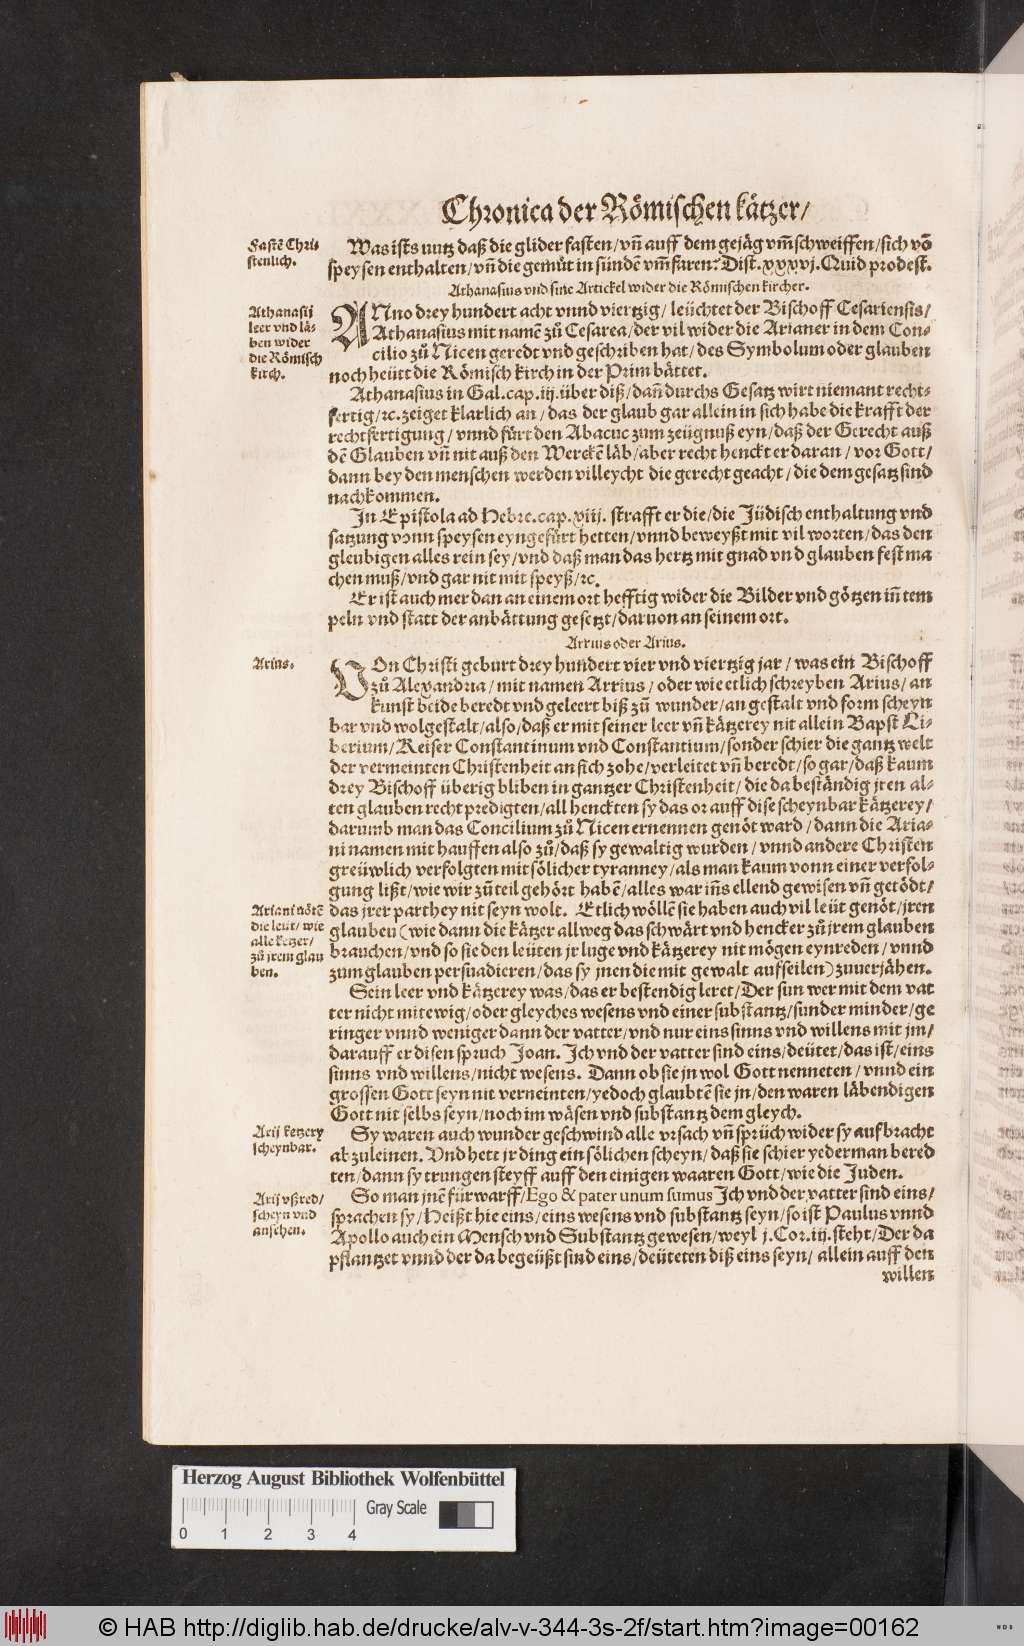 Chronica der Römischen kätzer/
Fastē Chri-
stenlich.
Was ists nutz daß die glider fasten/vñ auff dem gejäg vm̃schweiffen/sich vō
speysen enthalten/vñ die gemüt in sündē vm̃faren? Dist.xxxvj.Quid prodest.
Athanasius vnd sine Artickel wider die Römischen kircher.
Athanasij
leer vnd lä-
ben wider
die Römisch
kirch.
ANno drey hundert acht vnnd viertzig/ leüchtet der Bischoff Cesariensis/
Athanasius mit namē zů Cesarea/der vil wider die Arianer in dem Con-
cilio zů Nicen geredt vnd geschriben hat/des Symbolum oder glauben
noch heütt die Römisch kirch in der Prim bättet.
Athanasius in Gal.cap.iij.über diß/dañ durchs Gesatz wirt niemant recht-
fertig/ꝛc.zeiget klarlich an/das der glaub gar allein in sich habe die krafft der
rechtfertigung/vnnd fürt den Abacuc zum zeügnuß eyn/daß der Gerecht auß
dē Glauben vñ nit auß den Werckē läb/aber recht henckt er daran/vor Gott/
dann bey den menschen werden villeycht die gerecht geacht/die dem gesatz sind
nachkommen.
In Epistola ad Hebre.cap.xiij. strafft er die/die Jüdisch enthaltung vnd
satzung vonn speysen eyngefürt hetten/vnnd beweyßt mit vil worten/das den
gleubigen alles rein sey/vnd daß man das hertz mit gnad vnd glauben fest ma
chen muß/vnd gar nit mit speyß/ꝛc.
Er ist auch mer dan an einem ort hefftig wider die Bilder vnd götzen iñ tem
peln vnd statt der anbättung gesetzt/daruon an seinem ort.
Arrius oder Arius.
Arius.
VOn Christi geburt drey hundert vier vnd viertzig jar/was ein Bischoff
zů Alexandria/mit namen Arrius/oder wie etlich schreyben Arius/an
kunst beide beredt vnd geleert biß zů wunder/an gestalt vnd form scheyn
bar vnd wolgestalt/also/daß er mit seiner leer vñ kätzerey nit allein Bapst Li-
berium/Keiser Constantinum vnd Constantium/sonder schier die gantz welt
der vermeinten Christenheit an sich zohe/verleitet vñ beredt/so gar/daß kaum
drey Bischoff überig bliben in gantzer Christenheit/die da beständig jren al-
ten glauben recht predigten/all henckten sy das or auff dise scheynbar kätzerey/
darumb man das Concilium zů Nicen ernennen genöt ward/dann die Aria-
ni namen mit hauffen also zů/daß sy gewaltig wurden/vnnd andere Christen
greüwlich verfolgten mit sölicher tyranney/als man kaum vonn einer verfol-
gung lißt/wie wir zů teil gehört habē/alles war iñs ellend gewisen vñ getödt/
Ariani nötē
die leüt/ wie
alle ketzer/
zů jrem glau
ben.
das jrer parthey nit seyn wolt. Etlich wöllē sie haben auch vil leüt genöt/jren
glauben (wie dann die kätzer allweg das schwärt vnd hencker zů jrem glauben
brauchen/vnd so sie den leüten jr luge vnd kätzerey nit mögen eynreden/vnnd
zum glauben persuadieren/das sy jnen die mit gewalt aufseilen) zuuerjähen.
Sein leer vnd kätzerey was/das er bestendig leret/Der sun wer mit dem vat
ter nicht mitewig/oder gleyches wesens vnd einer substantz/sunder minder/ge
ringer vnnd weniger dann der vatter/vnd nur eins sinns vnd willens mit jm/
darauff er disen spruch Joan. Ich vnd der vatter sind eins/deütet/das ist/eins
sinns vnd willens/nicht wesens. Dann ob sie jn wol Gott nenneten/vnnd ein
grossen Gott seyn nit verneinten/yedoch glaubtē sie jn/den waren läbendigen
Gott nit selbs seyn/noch im wäsen vnd substantz dem gleych.
Arij ketzery
scheynbar.
Sy waren auch wunder geschwind alle vrsach vñ sprüch wider sy aufbracht
abzuleinen. Vnd hett jr ding ein sölichen scheyn/daß sie schier yederman bered
ten/dann sy trungen steyff auff den einigen waaren Gott/wie die Juden.
Arij vßred/
scheyn vnd
ansehen.
So man jnē fürwarff/Ego & pater unum sumus Ich vnd der vatter sind eins/
sprachen sy/Heißt hie eins/eins wesens vnd substantz seyn/so ist Paulus vnnd
Apollo auch ein Mensch vnd Substantz gewesen/weyl j.Cor.iij.steht/Der da
pflantzet vnnd der da begeüßt sind eins/deüteten diß eins seyn/ allein auff den
willen
Herzog August Bibliothek Wolfenbüttel
Gray Scale
0 1 2 3 4
© HAB http://diglib.hab.de/drucke/alv-v-344-3s-2f/start.htm?image=00162